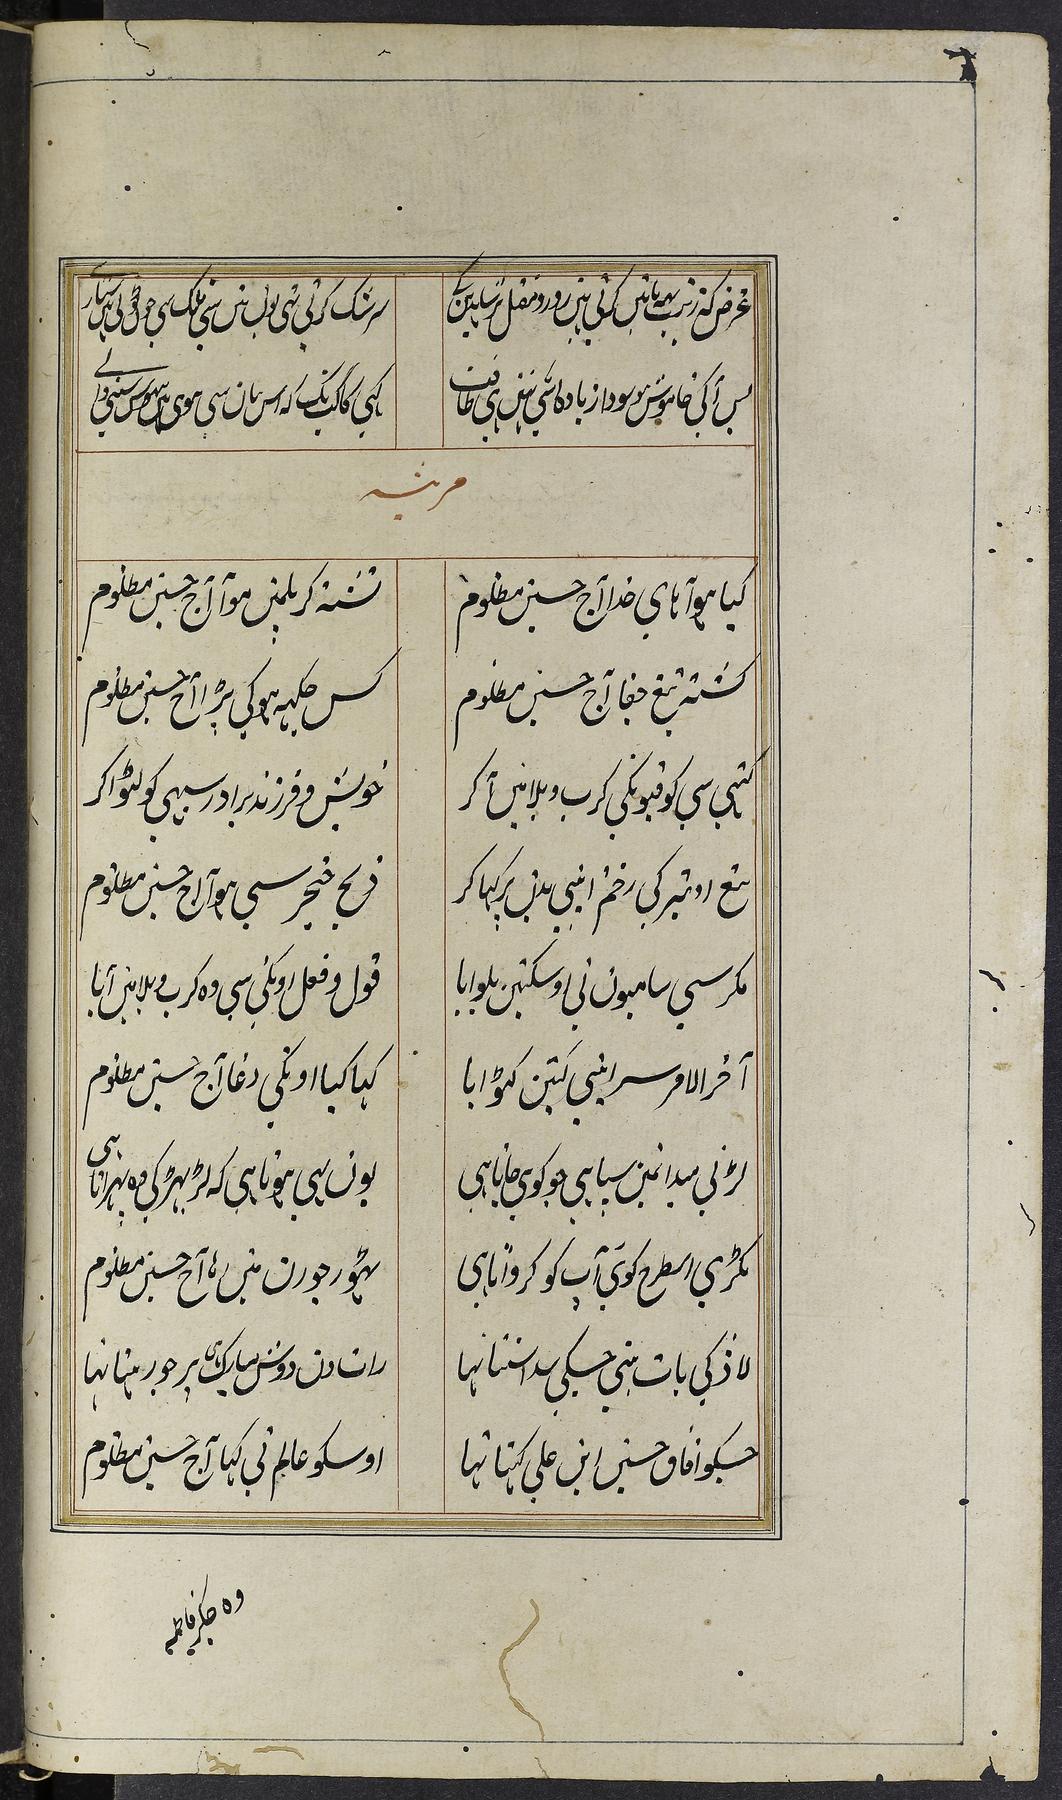 غرض کہ زینب یہ باتیں کرتی ہیں رو رو مقتل
سرشک کرتی ہی یوں ہیں سی فلک ہی جوں
بس آگی خاموش ہو سودا زیادہ اسی نہیں ہی طاقت
کہی کا کب تک کہ اس بیان سی ہوی ہیں بیہوش سننی والے
مرثیہ
کیا ہوا ہای خدا آج حسین مظلوم
تشنہ کربلمیں ہوا آج حسین مظلوم
کشتہ تیغ جفا آج حسین مظلوم
کس جکہہ ہو کی پڑا آج حسین مظلوم
کتہی سی کوفیونکی کرب و بلا میں آ کر
خویش و فرزند برادر سبہی کو کٹوا کر
تیغ اور تیر کی زخم اپنی بدن پر کہا کر
ذبح خنجر سی ہوا آج حسین مظلوم
مکر سی شامیون نی اوسکتین بلوایا
قول و فعل اونکی سی وہ کرب و بلا میں آیا
آخر الامر سر اپنی کتین کٹوایا
کہا کیا اونکی دغا آج حسین مظلوم
لڑنی میدانمین سپاہی جو کوی جاتا ہی
یون بہی ہوتا ہی کہ لڑ بہڑ کی وہ پہر آتا ہی
ٹکڑی اسطرح کوی آپ کو کرواتا ہی
ہو جور جو رن مین رہا آج حسین مظلوم
لاڈ کی بات نبی جسکی سدا سنتا تہا
رات دن دوش مبارک ہی پر جو رہتا تہا
جسکو آفاق حسین ابن علی کہتا تہا
اوسکو عالم نی کہا آج حسین مظلوم
وہ جکر فاطمہ